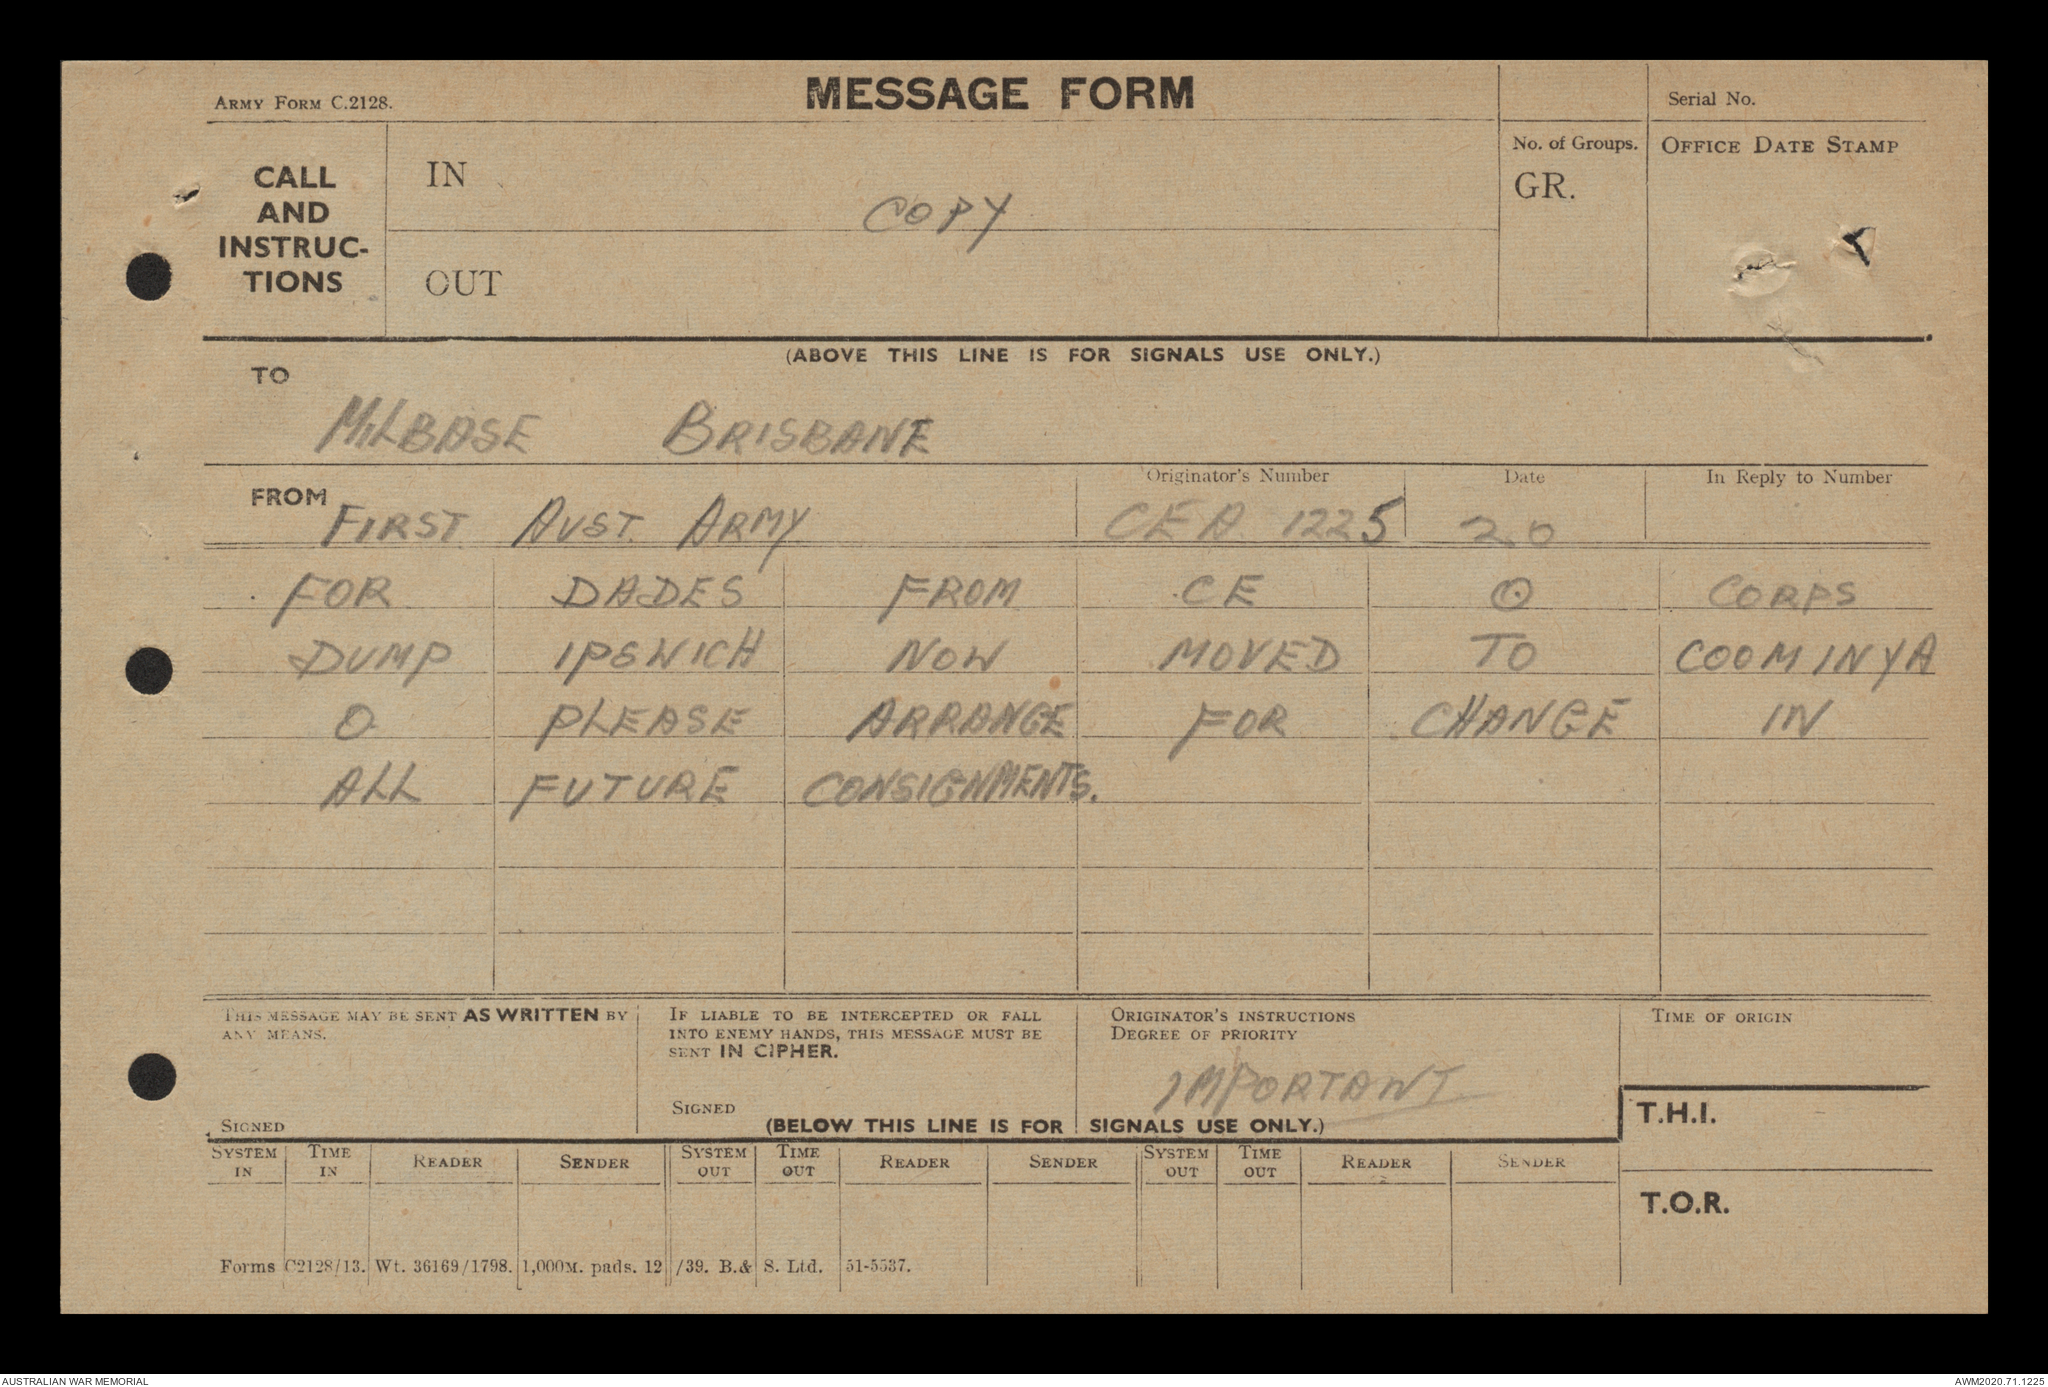 ARMY FORM C.2128.
MESSAGE FORM
Serial No.
CALL AND INSTRUC-TIONS
IN
COPY
OUT
No. of Groups.
GR.
OFFICE DATE STAMP
(ABOVE THIS LINE IS FOR SIGNALS USE ONLY.)
TO
MILBASE BRISBANE
FROM FIRST AUST. ARMY
Originator's Number
CEA 1225
Date
20
In Reply to Number
FOR DADES FROM CE O CORPS
DUMP IPSWICH NOW MOVED TO COOMINYA
O PLEASE ARRANGE FOR CHANGE IN
ALL FUTURE CONSIGNMENTS.
THIS MESSAGE MAY BE SENT AS WRITTEN BY
ANY MEANS.
SIGNED
IF LIABLE TO BE INTERCEPTED OR FALL
INTO ENEMY HANDS, THIS MESSAGE MUST BE
SENT IN CIPHER.
SIGNED
ORIGINATOR'S INSTRUCTIONS
DEGREE OF PRIORITY
IMPORTANT
TIME OF ORIGIN
(BELOW THIS LINE IS FOR SIGNALS USE ONLY.)
T.H.I.
SYSTEM IN TIME IN READER SENDER SYSTEM OUT TIME OUT READER SENDER SYSTEM OUT TIME OUT READER SENDER
T.O.R.
Forms C2128/13. Wt. 36169/1798. 1,000M. pads. 12/39. B.& S. Ltd. 51-5537.
AUSTRALIAN WAR MEMORIAL
AWM2020.71.1225